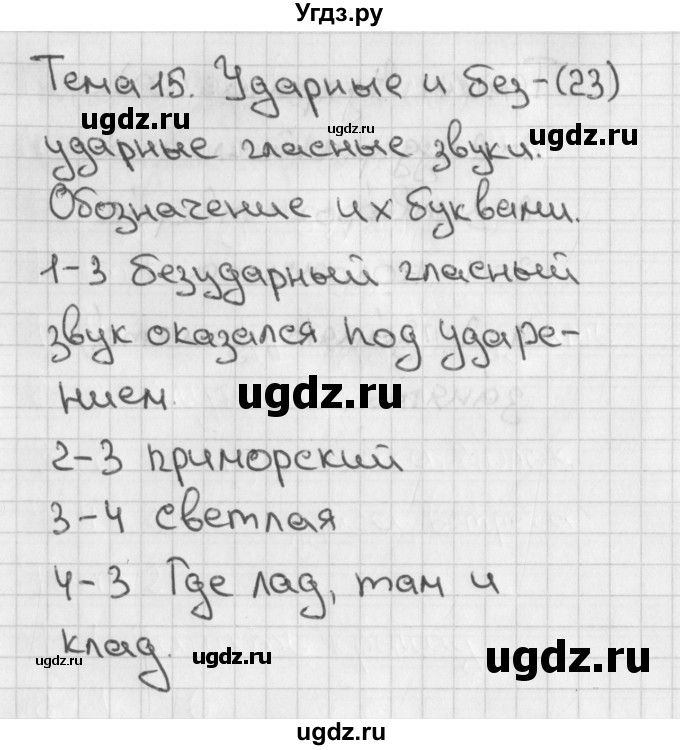 Угдз.ру
Тема 15. Ударные и без-(23)
ugdz.ru ugdz.ru ugdz.ru
ударные гласные звуки.
Обозначение их буквами.
1-3 безударный гласный
звук оказался под ударе-
нием. ugdz.ru
2-3 приморский
3-4 светлая
4-3 Где лад, там и
клад.
ugdz.ru ugdz.ru ugdz.ru
ugdz.ru